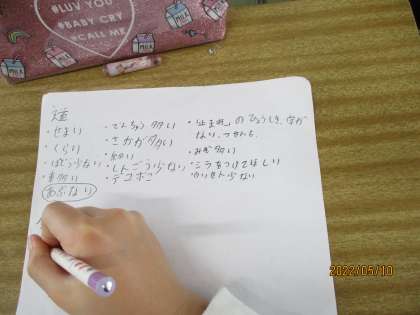 #LUV YOU
#BABY CRY
#CALL ME
MILK
MILK
道
・せまい
・くらい
・ほどう少ない
・車多い
あぶない
・でんちゅう多い
・さかが多い
・しんごう少ない
・デコボコ
・「止まれ」のひょうしき、なが
・みぞ多い
・ミラをつけてほしい
少ない
2022/05/10